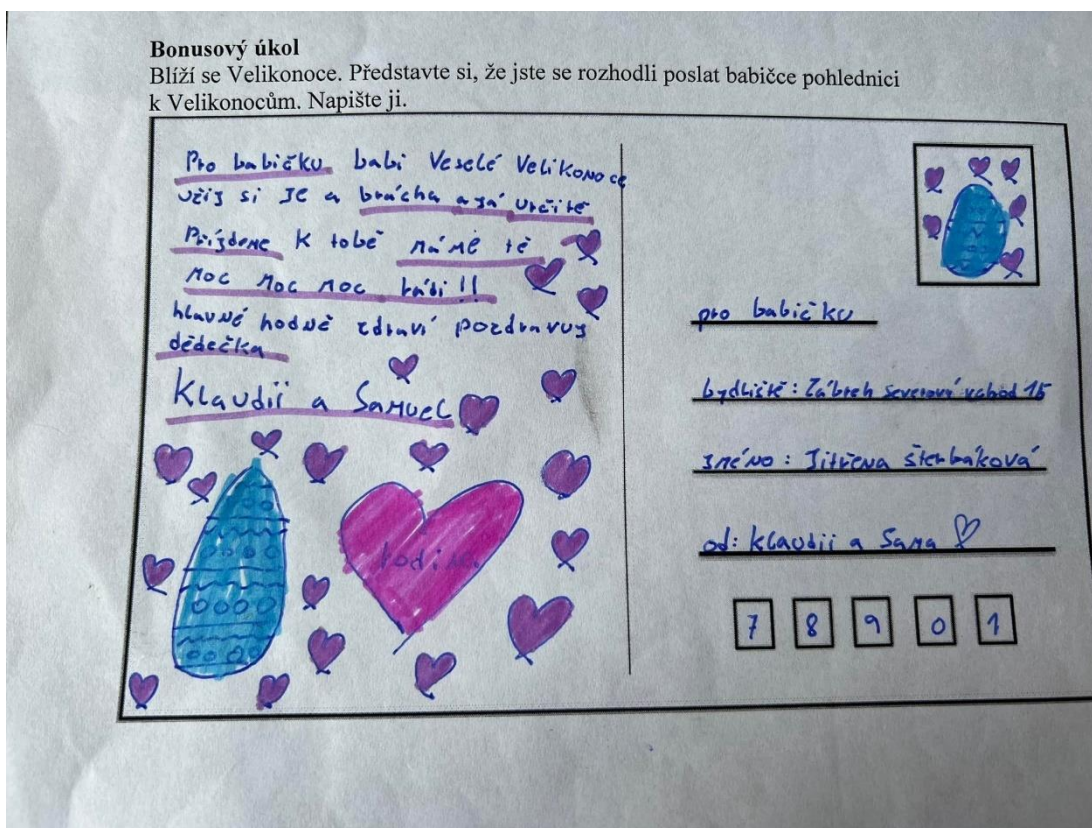 Bonusový úkol
Blíží se Velikonoce. Představte si, že jste se rozhodli poslat babičce pohlednici
k Velikonocům. Napište ji.
Pro babičku babi Veselé Velikonoce
užij si je a brácha a já určitě
Přijdeme k tobě máme tě
moc moc moc rádi!!
hlavně hodně zdraví pozdravuj
dědečka
Klaudii a Samuel
rodina
pro babičku
bydliště: Zábreh severová vchod 15
Jméno: Jitřena Šterbáková
od: Klaudii a Sama
7 8 9 0 1